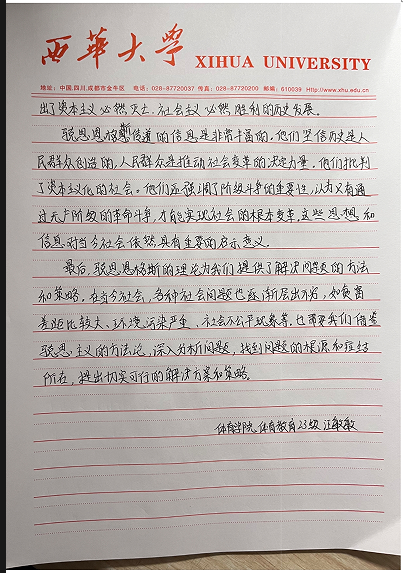 西華大学
XIHUA UNIVERSITY
地址：中国.四川.成都市金牛区 电话：028-87720037 传真：028-87720200 邮编：610039 Http://www.xhu.edu.cn
出了资本主义必然灭亡、社会主义必然胜利的历史发展。
马克思恩格斯传递的信息是非常丰富的，他们坚信历史是人
民群众创造的，人民群众是推动社会变革的决定力量，他们批判
了资本主义化的社会。他们还强调了阶级斗争的重要性，认为只有通
过无产阶级的革命斗争，才能实现社会的根本变革。这些思想和
信息对当今社会依然具有重要的启示意义。
最后，马克思恩格斯的理论为我们提供了解决问题的方法
和策略。在当今社会，各种社会问题也逐渐层出不穷，如贫富
差距比较大、环境污染严重、社会不公平现象等，也需要我们借鉴
马克思主义的方法论，深入分析问题，找到问题的根源和症结
所在，提出切实可行的解决方案和策略。
体育学院 体育教育23级 江敏敏